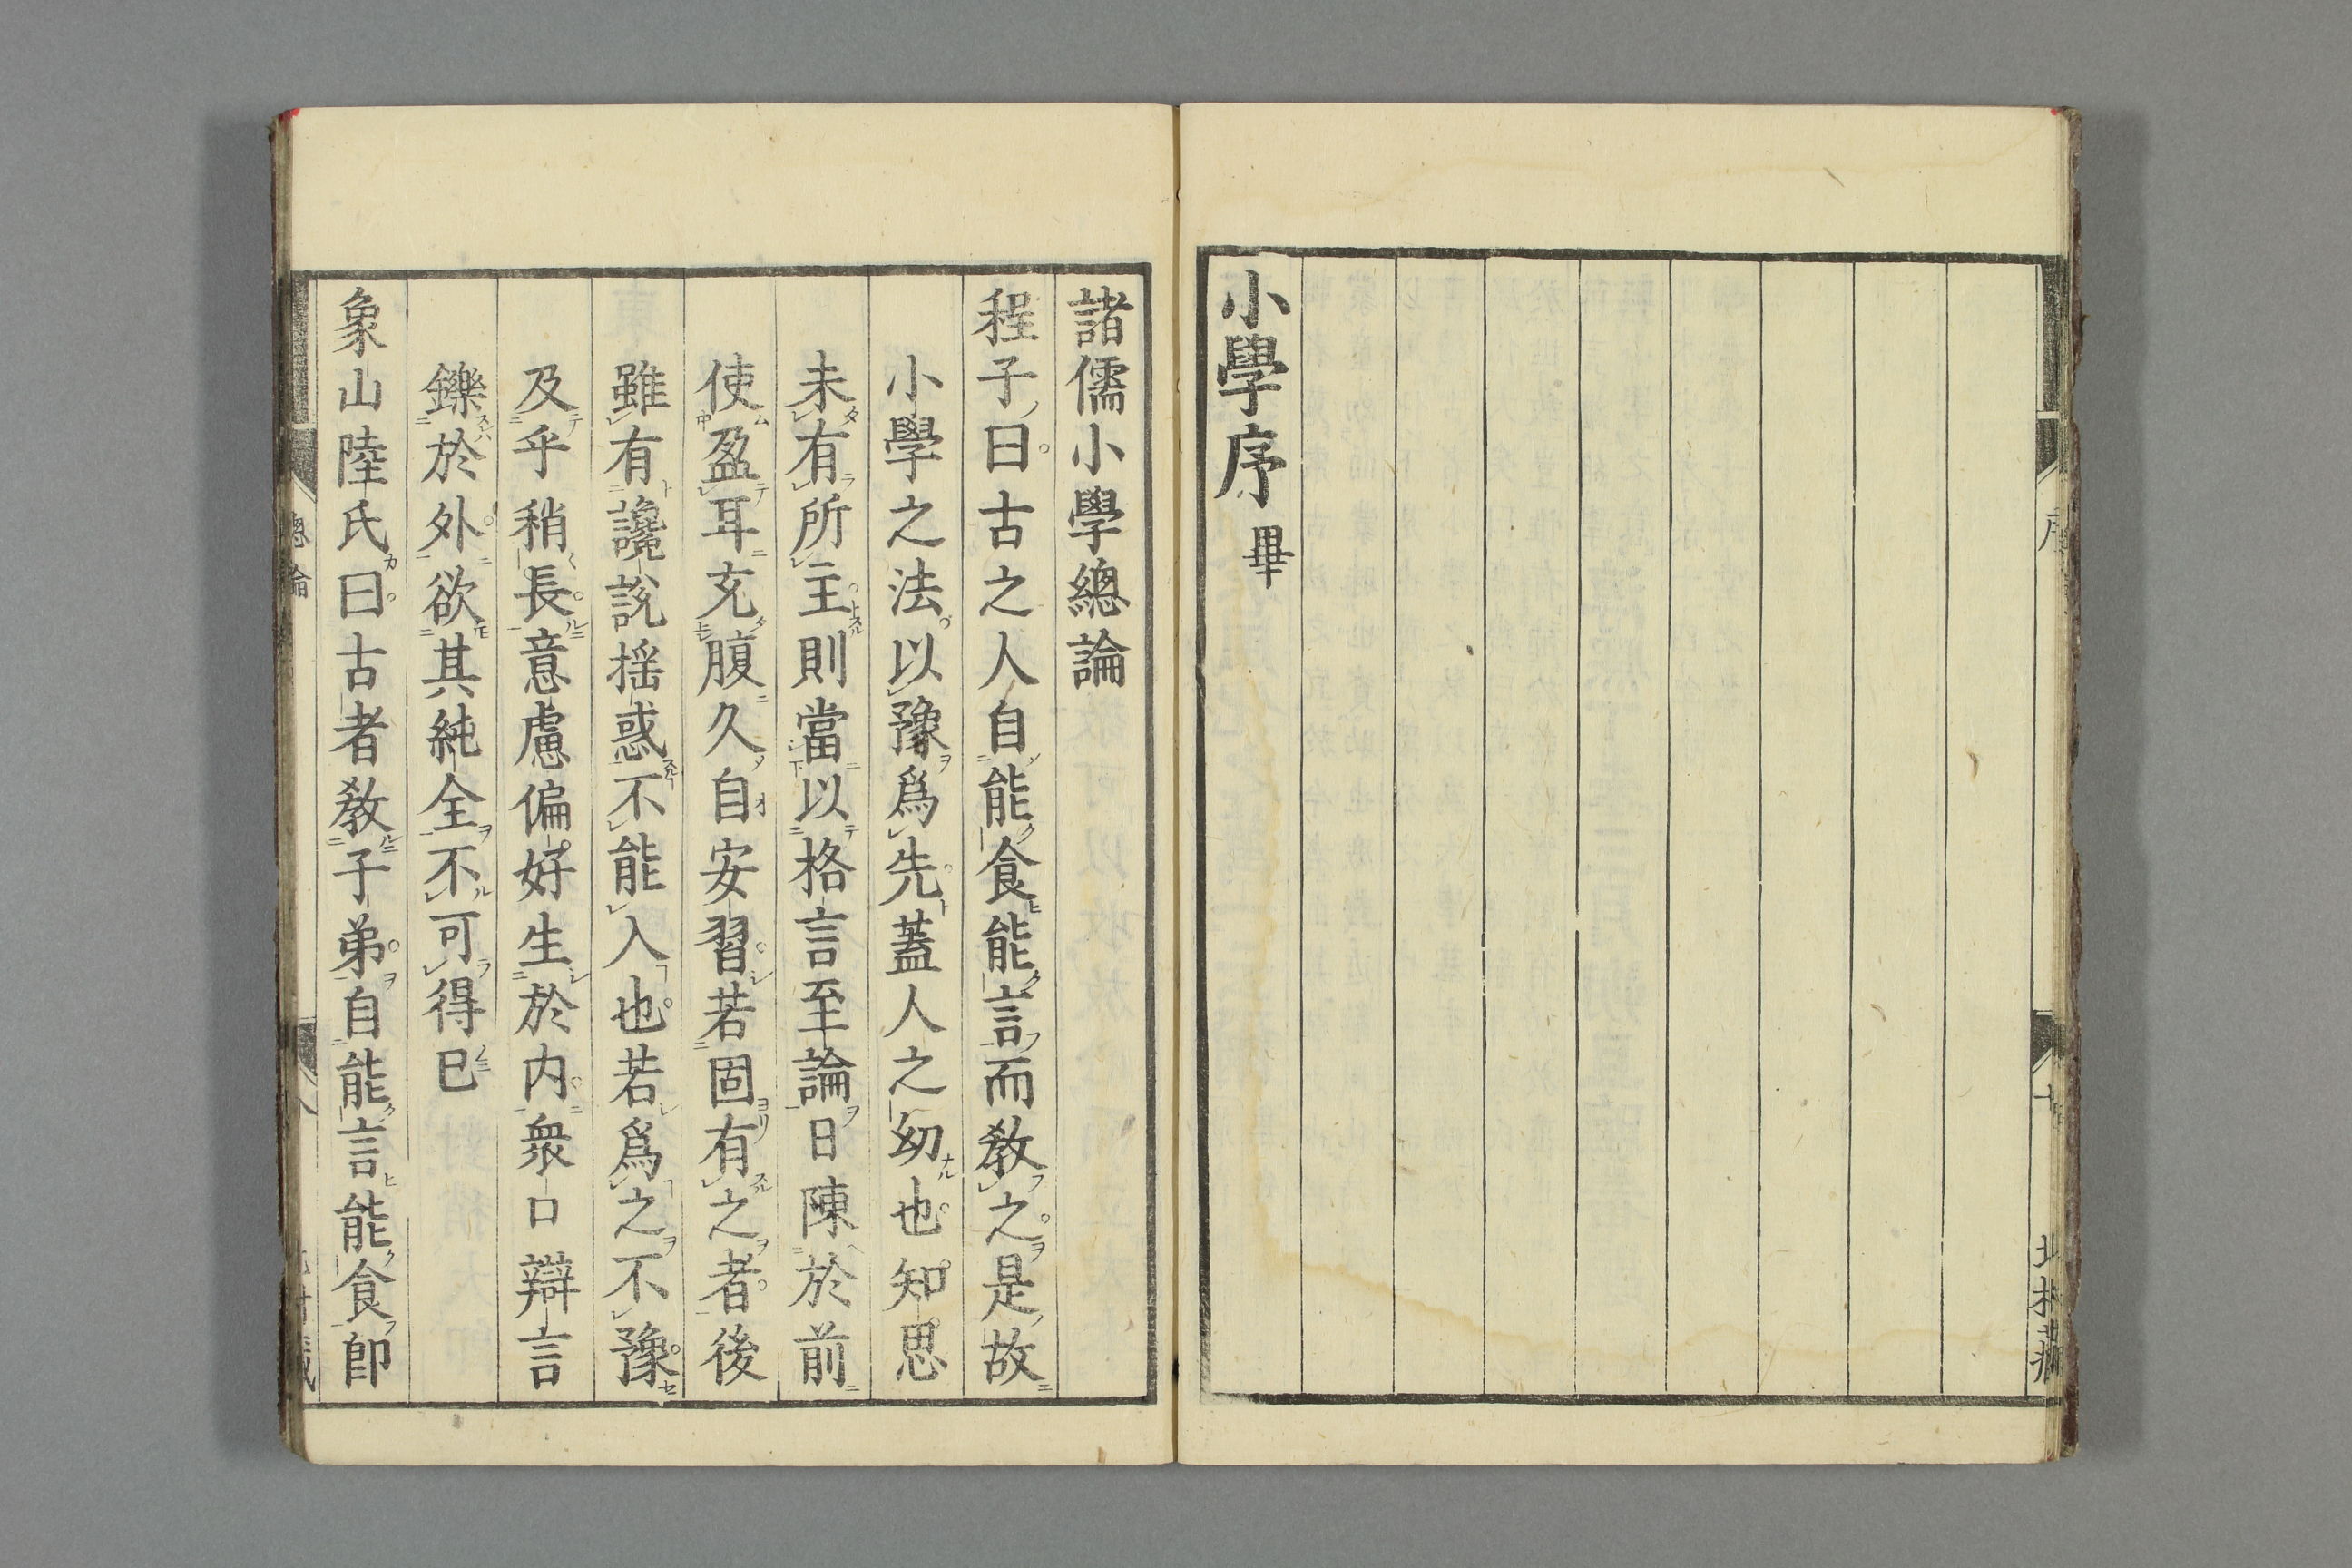 小學序畢
諸儒小學總論
程子曰古之人自能食能言而教之是故
小學之法以豫爲先蓋人之幼也知思
未有所主則當以格言至論日陳於前
使盈耳充腹久自安習若固有之者後
雖有讒說揺惑不能入也若爲之不豫
及乎稍長意慮偏好生於内衆口辯言
鑠於外欲其純全不可得已
象山陸氏曰古者教子弟自能言能食即
總論